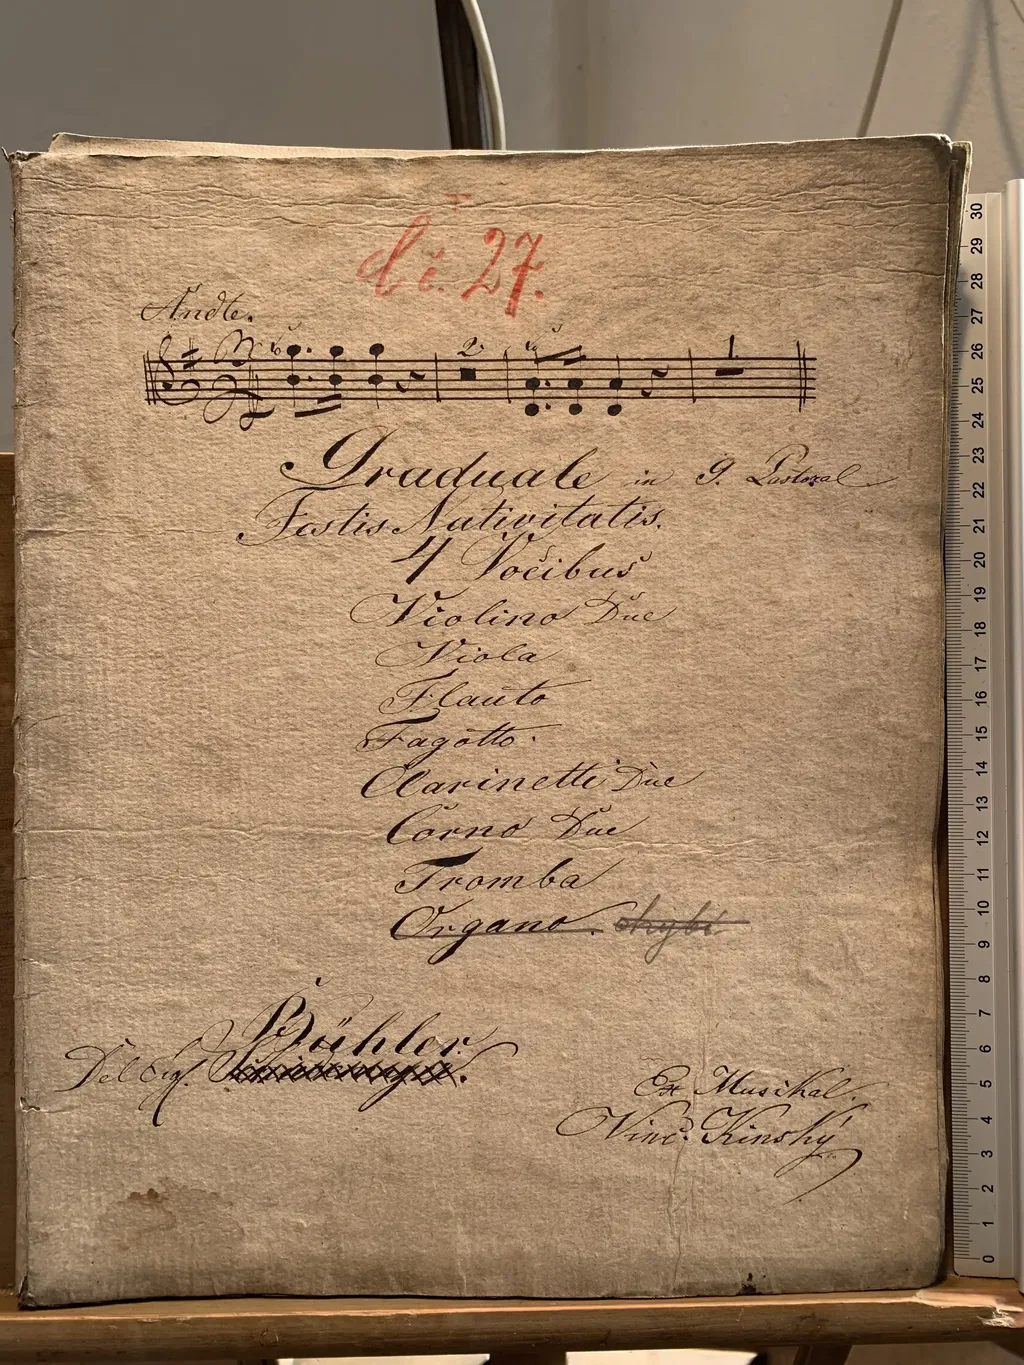 č. 27.
Andte.
2
1
Graduale in G. Pastoral
Festis Nativitatis.
4 Vocibus
Violino Due
Viola
Flauto
Fagotto.
Clarinetti Due
Corno Due
Tromba
Organo. chybí
Bühler.
Del Sig. Schiedermayer.
Ex Musikal.
Vinc. Kinský
30
29
28
27
26
25
24
23
22
21
20
19
18
17
16
15
14
13
12
11
10
9
8
7
6
5
4
3
2
1
0